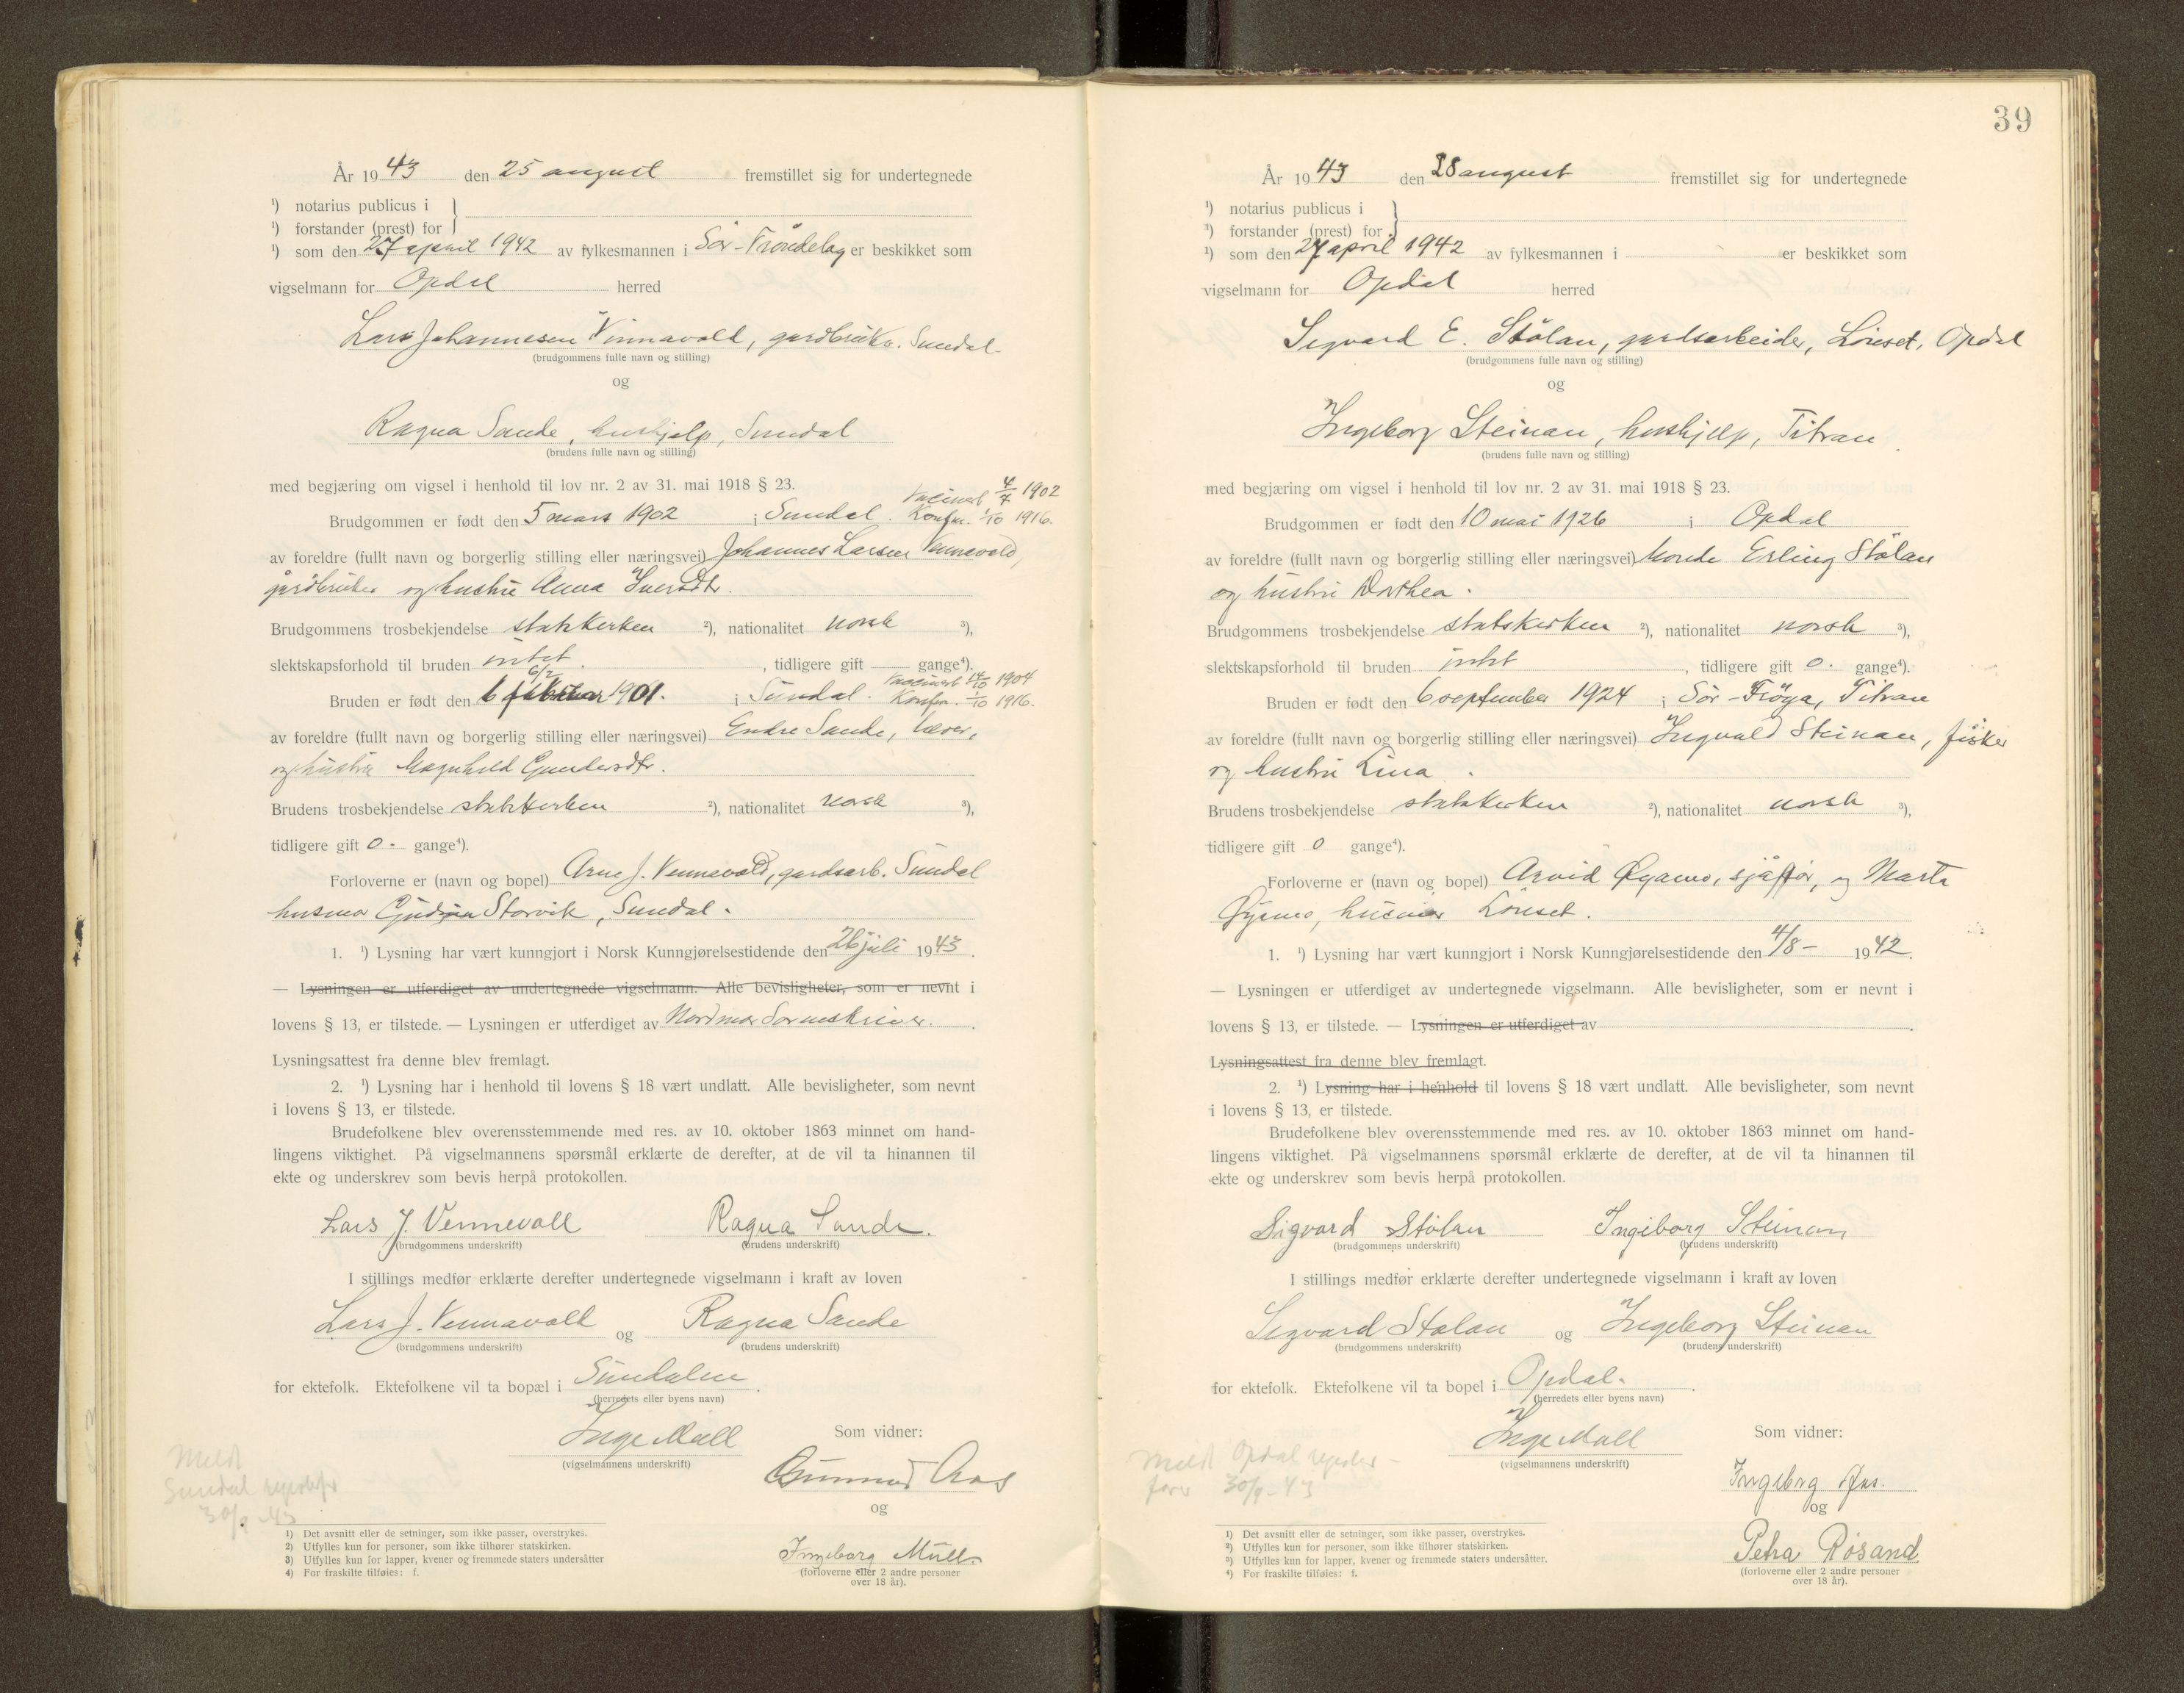 År 1943 den 25 august fremstillet sig for undertegnede
¹) notarius publicus i }
¹) forstander (prest) for
¹) som den 27 april 1942 av fylkesmannen i Sør-Trøndelag er beskikket som
vigselmann for Opdal herred
Lars Johannesen Vinnavold, gardbruker. Sundal
(brudgommens fulle navn og stilling)
og
Ragna Sande, hushjelp, Sundal
(brudens fulle navn og stilling)
med begjæring om vigsel i henhold til lov nr. 2 av 31. mai 1918 § 23.
Vacinert 4/7 1902
Brudgommen er født den 5 mars 1902 i Sundal. Konfir. 1/10 1916.
av foreldre (fullt navn og borgerlig stilling eller næringsvei) Johannes Larsen Vennevold,
gårdbruker og hustru Anna Iversdtr.
Brudgommens trosbekjendelse statskirken ²), nationalitet norsk ³),
slektskapsforhold til bruden intet, tidligere gift — gange⁴).
6/2 Vaccinert 14/10 1904
Bruden er født den 6 februar 1901. i Sundal. Konfir. 1/10 1916.
av foreldre (fullt navn og borgerlig stilling eller næringsvei) Endre Sande,
og hustru Magnhild Gundersdtr.
Brudens trosbekjendelse statskirken ²), nationalitet norsk ³),
tidligere gift 0 - gange⁴).
Forloverne er (navn og bopel) Arne J. Vennevold, gardsarb. Sundal
husmor Gudrun Storvik, Sundal.
1. ¹) Lysning har vært kunngjort i Norsk Kunngjørelsestidende den 26 juli 1943.
— Lysningen er utferdiget av undertegnede vigselmann. Alle bevisligheter, som er nevnt i
lovens § 13, er tilstede. — Lysningen er utferdiget av Nordmør Sorenskriver.
Lysningsattest fra denne blev fremlagt.
2. ¹) Lysning har i henhold til lovens § 18 vært undlatt. Alle bevisligheter, som nevnt
i lovens § 13, er tilstede.
Brudefolkene blev overensstemmende med res. av 10. oktober 1863 minnet om hand-
lingens viktighet. På vigselmannens spørsmål erklærte de derefter, at de vil ta hinannen til
ekte og underskrev som bevis herpå protokollen.
Lars J. Vennevoll Ragna Sande.
(brudgommens underskrift) (brudens underskrift)
I stillings medfør erklærte derefter undertegnede vigselmann i kraft av loven
Lars J. Vennavold og Ragna Sande
(brudgommens underskrift) (brudens underskrift)
for ektefolk. Ektefolkene vil ta bopæl i Sundalen.
(herredets eller byens navn)
Inge Mull Som vidner:
(vigselmannens underskrift)
Gunnud Aas
og
Ingeborg Mull
(forloverne eller 2 andre personer
over 18 år).
Meldt
Sundal registerfr
30/9-43
1) Det avsnitt eller de setninger, som ikke passer, overstrykes.
2) Utfylles kun for personer, som ikke tilhører statskirken.
3) Utfylles kun for lapper, kvener og fremmede staters undersåtter
4) For fraskilte tilføies: f.
39
År 1943 den 28 august fremstillet sig for undertegnede
¹) notarius publicus i }
¹) forstander (prest) for
¹) som den 27 april 1942 av fylkesmannen i er beskikket som
vigselmann for Opdal herred
Sigvard E. Stölan, gardsarbeider, Lönset, Opdal
(brudgommens fulle navn og stilling)
og
Ingeborg Steinan, hushjelp, Titran
(brudens fulle navn og stilling)
med begjæring om vigsel i henhold til lov nr. 2 av 31. mai 1918 § 23.
Brudgommen er født den 10 mai 1926 i Opdal
av foreldre (fullt navn og borgerlig stilling eller næringsvei) bonde Erling Stölan
og hustru Dorthea.
Brudgommens trosbekjendelse statskirken ²), nationalitet norsk ³),
slektskapsforhold til bruden intet, tidligere gift 0. gange⁴).
Bruden er født den 6 september 1924 i Sör-Fröya, Titran
av foreldre (fullt navn og borgerlig stilling eller næringsvei) Ingvald Steinan, fisker
og hustru Lina.
Brudens trosbekjendelse statskirken ²), nationalitet norsk ³),
tidligere gift 0 gange⁴).
Forloverne er (navn og bopel) Arvid Øyamo, sjåfør, og Marta
Øyamo, husmor Lönset.
1. ¹) Lysning har vært kunngjort i Norsk Kunngjørelsestidende den 4/8 - 1942.
— Lysningen er utferdiget av undertegnede vigselmann. Alle bevisligheter, som er nevnt i
lovens § 13, er tilstede. — Lysningen er utferdiget av
Lysningsattest fra denne blev fremlagt.
2. ¹) Lysning har i henhold til lovens § 18 vært undlatt. Alle bevisligheter, som nevnt
i lovens § 13, er tilstede.
Brudefolkene blev overensstemmende med res. av 10. oktober 1863 minnet om hand-
lingens viktighet. På vigselmannens spørsmål erklærte de derefter, at de vil ta hinannen til
ekte og underskrev som bevis herpå protokollen.
Sigvard Stölan Ingiborg Steinan
(brudgommens underskrift) (brudens underskrift)
I stillings medfør erklærte derefter undertegnede vigselmann i kraft av loven
Sigvard Stølan og Ingeborg Steinan
(brudgommens underskrift) (brudens underskrift)
for ektefolk. Ektefolkene vil ta bopel i Opdal.
(herredets eller byens navn)
Inge Mull Som vidner:
(vigselmannens underskrift)
Ingebrg Aas.
og
Petra Rösand
(forloverne eller 2 andre personer
over 18 år).
Meldt Opdal register-
fører 30/9-43
1) Det avsnitt eller de setninger, som ikke passer, overstrykes.
2) Utfylles kun for personer, som ikke tilhører statskirken.
3) Utfylles kun for lapper, kvener og fremmede staters undersåtter.
4) For fraskilte tilføies: f.